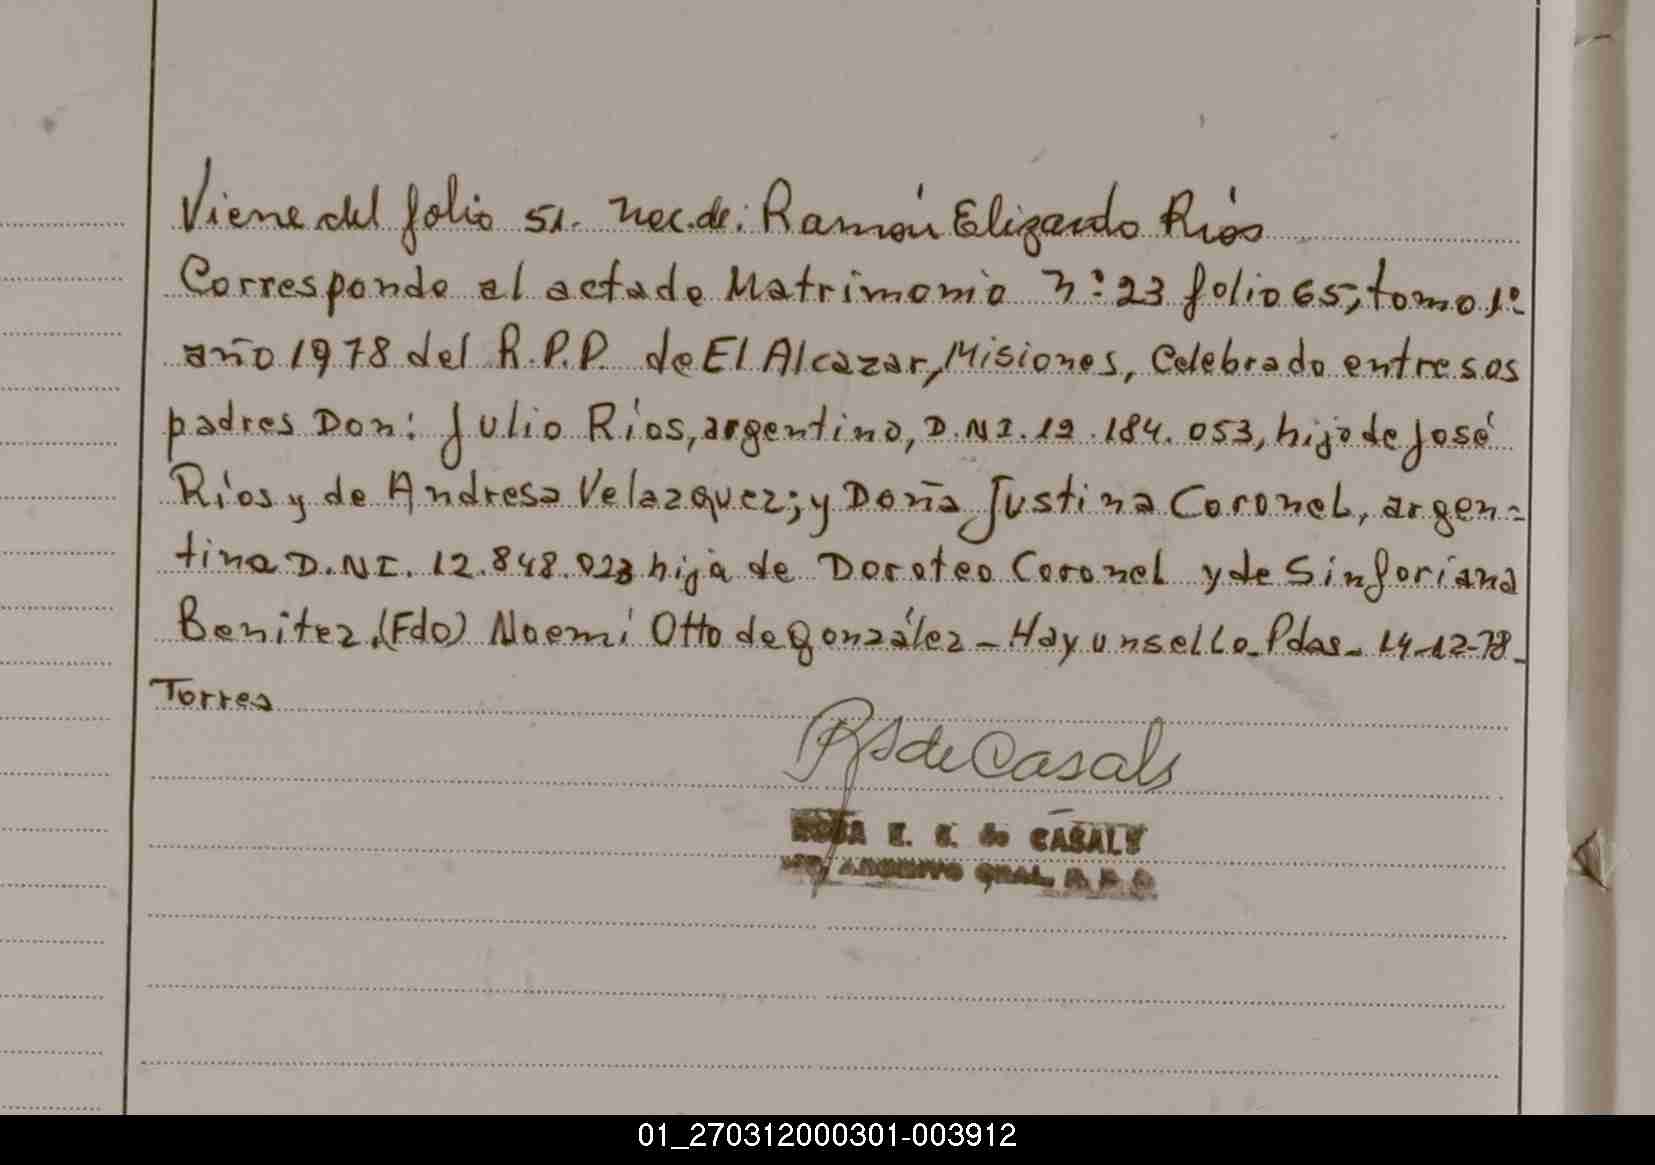 Viene del folio 51. Nac. de: Ramón Elizardo Ríos
Corresponde al acta de Matrimonio N° 23 folio 65, tomo 1°
año 1978 del R.P.P. de El Alcazar, Misiones, Celebrado entre sos
padres Don: Julio Ríos, argentino, D.NI. 12.184.053, hijo de José
Ríos y de Andresa Velazquez; y Doña Justina Coronel, argen=
tina D.NI. 12.848.023 hija de Doroteo Coronel y de Sinforiana
Benitez. (Fdo) Noemí Otto de González - Hay un sello. Pdas. 14-12-78.
Torres
RS de Casals
ROSA E. S. de CASALS
ARCHIVO GRAL. R.P.P.
01_270312000301-003912